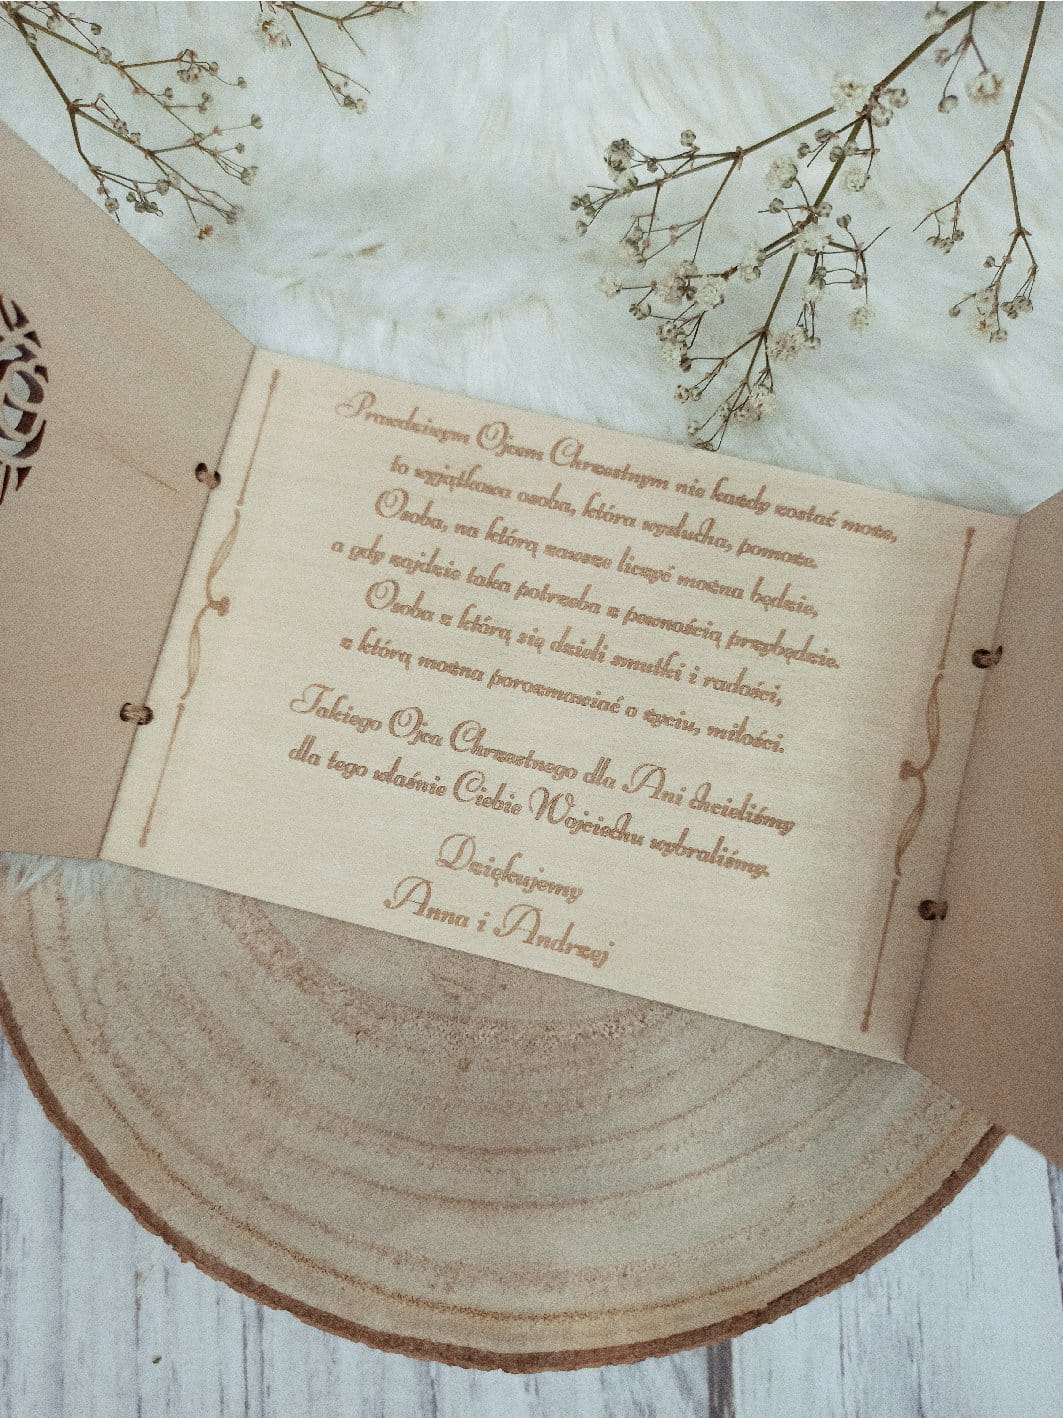 Prawdziwym Ojcem Chrzestnym nie każdy zostać może,
to wyjątkowa osoba, która wysłucha, pomoże.
Osoba, na którą zawsze liczyć można będzie,
a gdy zajdzie taka potrzeba z pewnością przybędzie.
Osoba z którą się dzieli smutki i radości,
z którą można porozmawiać o życiu, miłości.
Takiego Ojca Chrzestnego dla Ani chcieliśmy
dla tego właśnie Ciebie Wojciechu wybraliśmy.
Dziękujemy
Anna i Andrzej